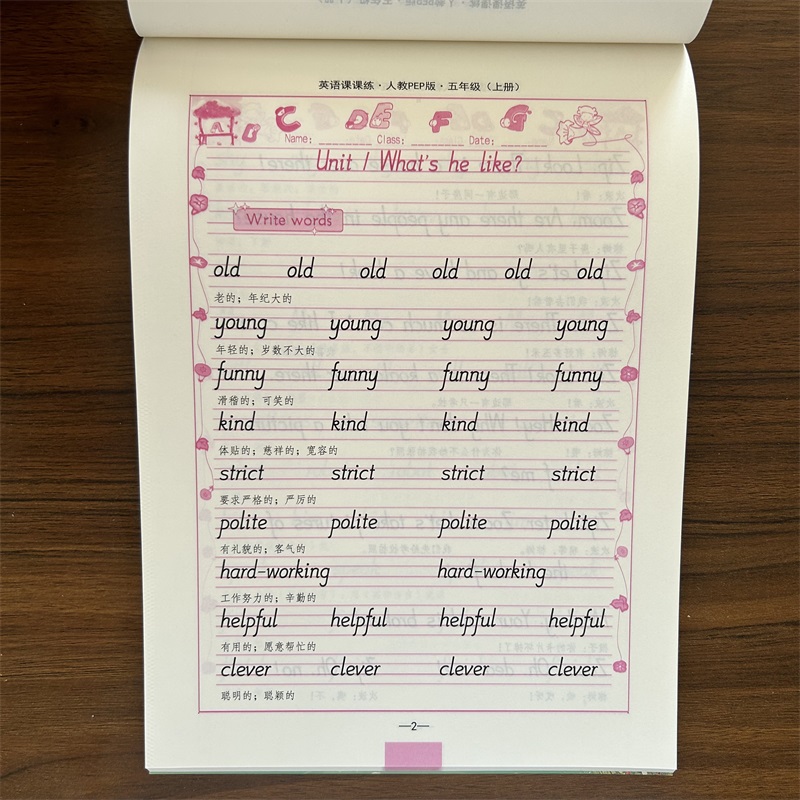 英语课课练·人教PEP版·五年级（上册）
A B C D E F G
Name: Class: Date:
Unit 1 What's he like?
Write words
old old old old old old
老的；年纪大的
young young young young
年轻的；岁数不大的
funny funny funny funny
滑稽的；可笑的
kind kind kind kind
体贴的；慈祥的；宽容的
strict strict strict strict
要求严格的；严厉的
polite polite polite polite
有礼貌的；客气的
hard-working hard-working
工作努力的；辛勤的
helpful helpful helpful helpful
有用的；愿意帮忙的
clever clever clever clever
聪明的；聪颖的
—2—